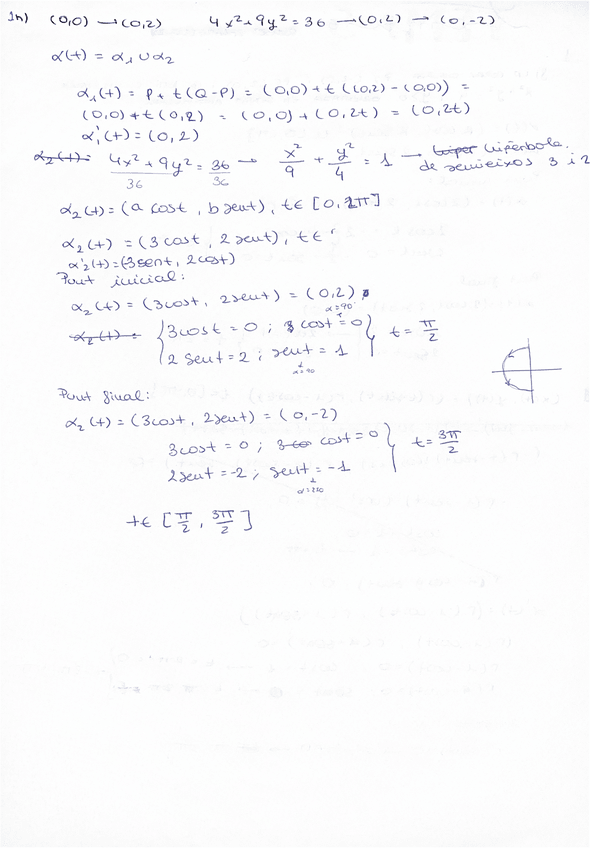 1n) (0,0) → (0,2) 4x²+9y²=36 → (0,2) → (0,-2)
α(t) = α₁ ∪ α₂
α₁(t) = P + t(Q-P) = (0,0) + t((0,2) - (0,0)) =
(0,0) + t(0,2) = (0,0) + (0,2t) = (0,2t)
α₁'(t) = (0,2)
α₂(t) = 4x²+9y²/36 = 36/36 → x²/9 + y²/4 = 1 → hiper hipèrbola
de semieixos 3 i 2
α₂(t) = (a cost, b sent), t∈[0,2π]
α₂(t) = (3cost, 2sent), t∈
α₂'(t) = (-3sent, 2cost)
Punt inicial:
α₂(t) = (3cost, 2sent) = (0,2)
α=90°
α₂(t) = { 3cost = 0 ; cost = 0
2sent = 2 ; sent = 1 } t = π/2
α=90
Punt final:
α₂(t) = (3cost, 2sent) = (0,-2)
3cost = 0 ; cost = 0
2sent = -2 ; sent = -1 } t = 3π/2
α=270
t∈[π/2, 3π/2]